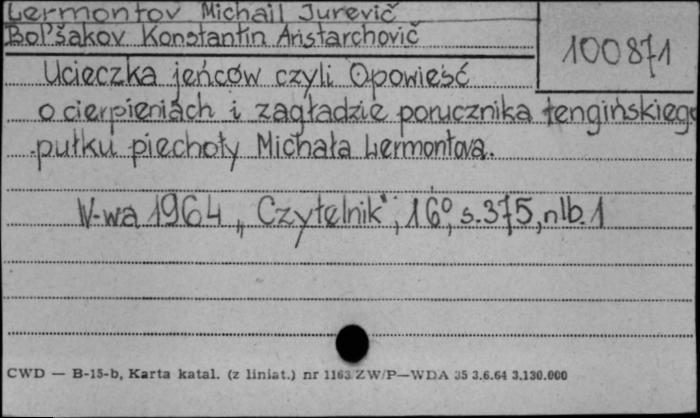 Lermontov Michail Jurevič
Bol'šakov Konstantin Aristarchovič
100871
Ucieczka jeńców czyli Opowieść
o cierpieniach i zagładzie porucznika tengińskiego
pułku piechoty Michała Lermontova.
W-wa 1964 „Czytelnik", 16°, s. 375, nlb. 1
CWD — B-15-b, Karta katal. (z liniat.) nr 1163 ZW/P—WDA 35 3.6.64 3.130.000